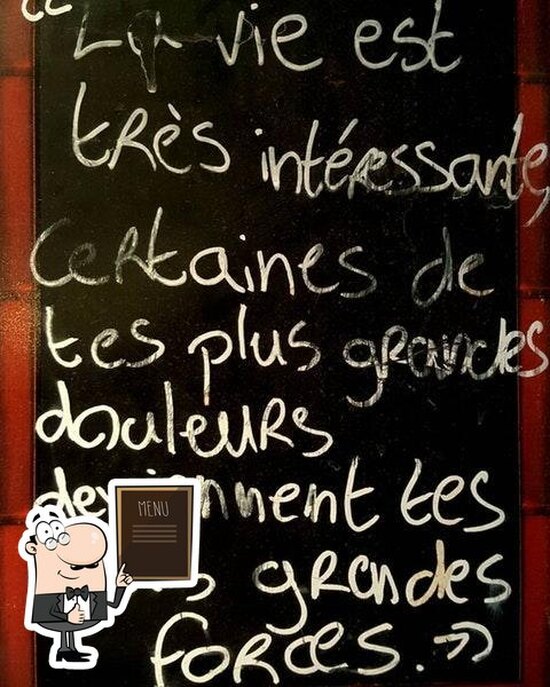 “ La vie est
très intéressante,
Certaines de
tes plus grandes
douleurs
deviennent tes
grandes
forces. »
MENU